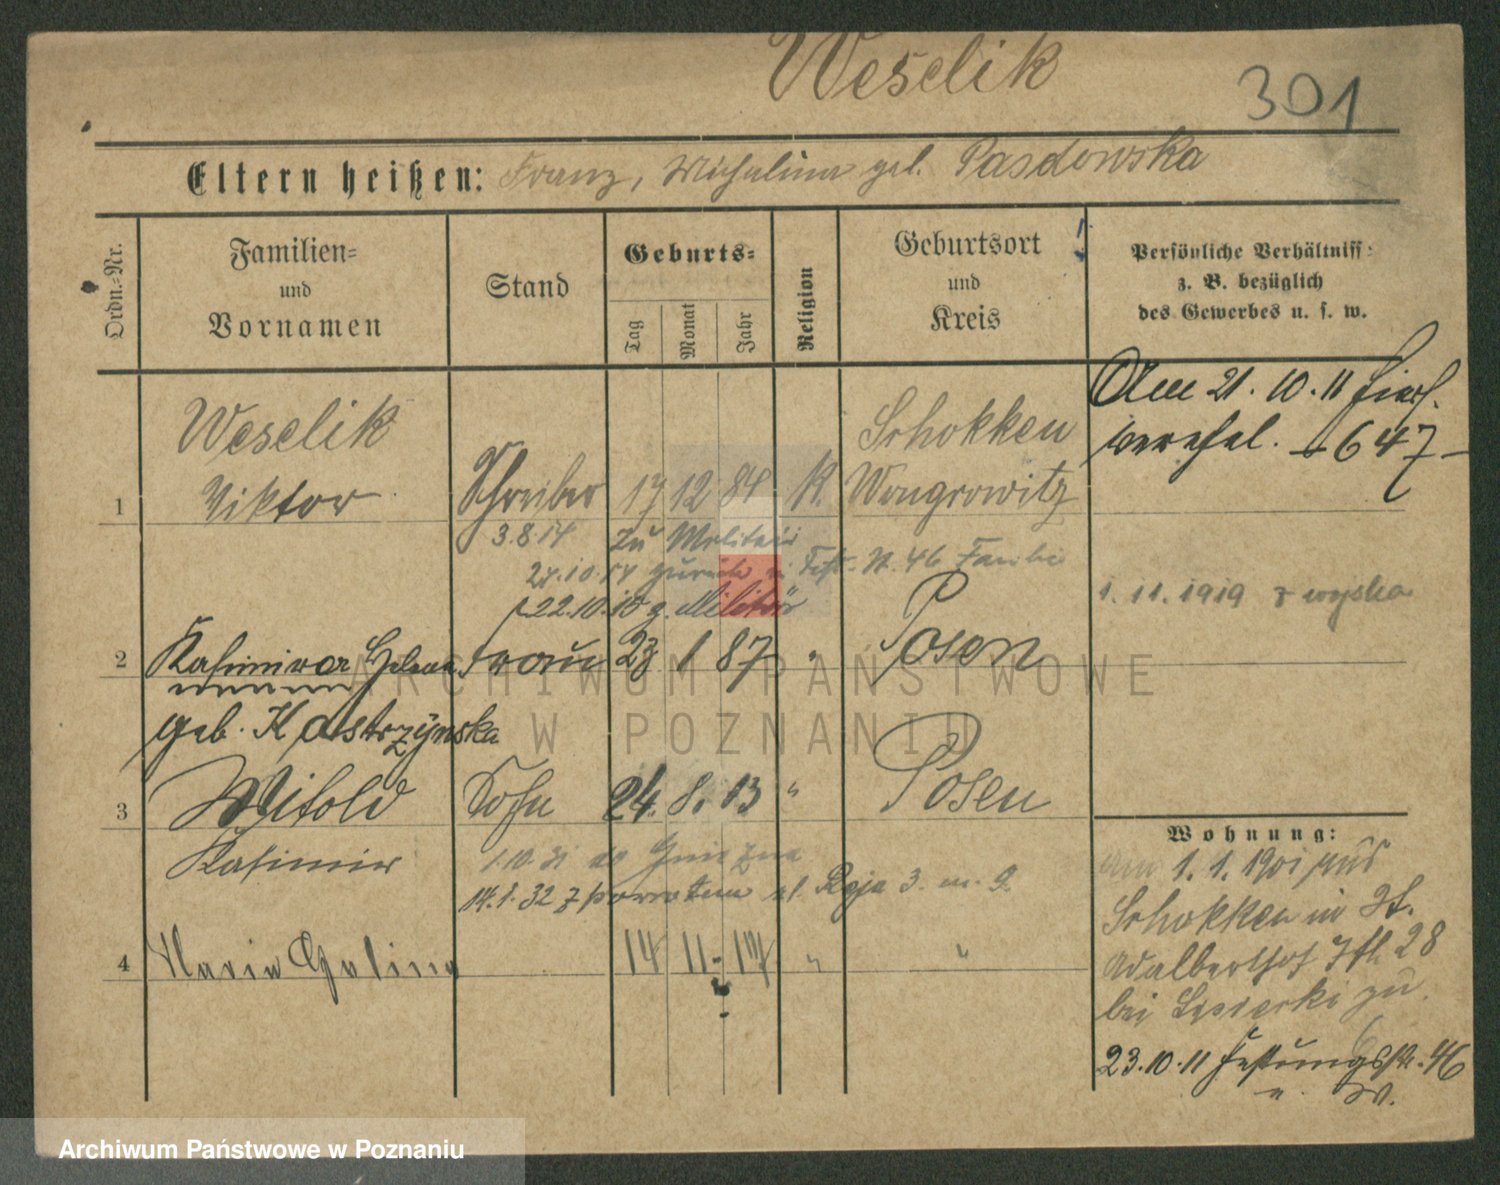 Weselik
301
Eltern heißen: Franz, Michalina geb. Pasdowska
Ordn.-Nr.
Familien- und Vornamen
Stand
Geburts-
Tag
Monat
Jahr
Religion
Geburtsort und Kreis
Persönliche Verhältniss-
z. B. bezüglich
des Gewerbes u. s. w.
Am 21.10.11 hier
647
Weselik
Schokken
1 Viktor Schreiber 17 12 84 K. Wongrowitz
3.8.14 zu Militair
27.10.14 zurück in Fest. St. 46 Familie
22.10.15 z. Militär
1.11.1919 z wojska
2 Kasimira Helena Frau 23 1 87 " Posen
geb. Kostrzynska
3 Witold Sohn 24. 8. 13 " Posen
Kasimir
1.10.31 do Gniezna
14.1.32 z powrotem ul. Reja 3. m. 9.
4 Maria Halina 14 11. 17 " "
Wohnung:
am 1.1.1901 aus
Schokken in St.
Adalberthof 28
bei zu
23.10.11 Festungsstr. 46
u. W.
ARCHIWUM PAŃSTWOWE
W POZNANIU
Archiwum Państwowe w Poznaniu